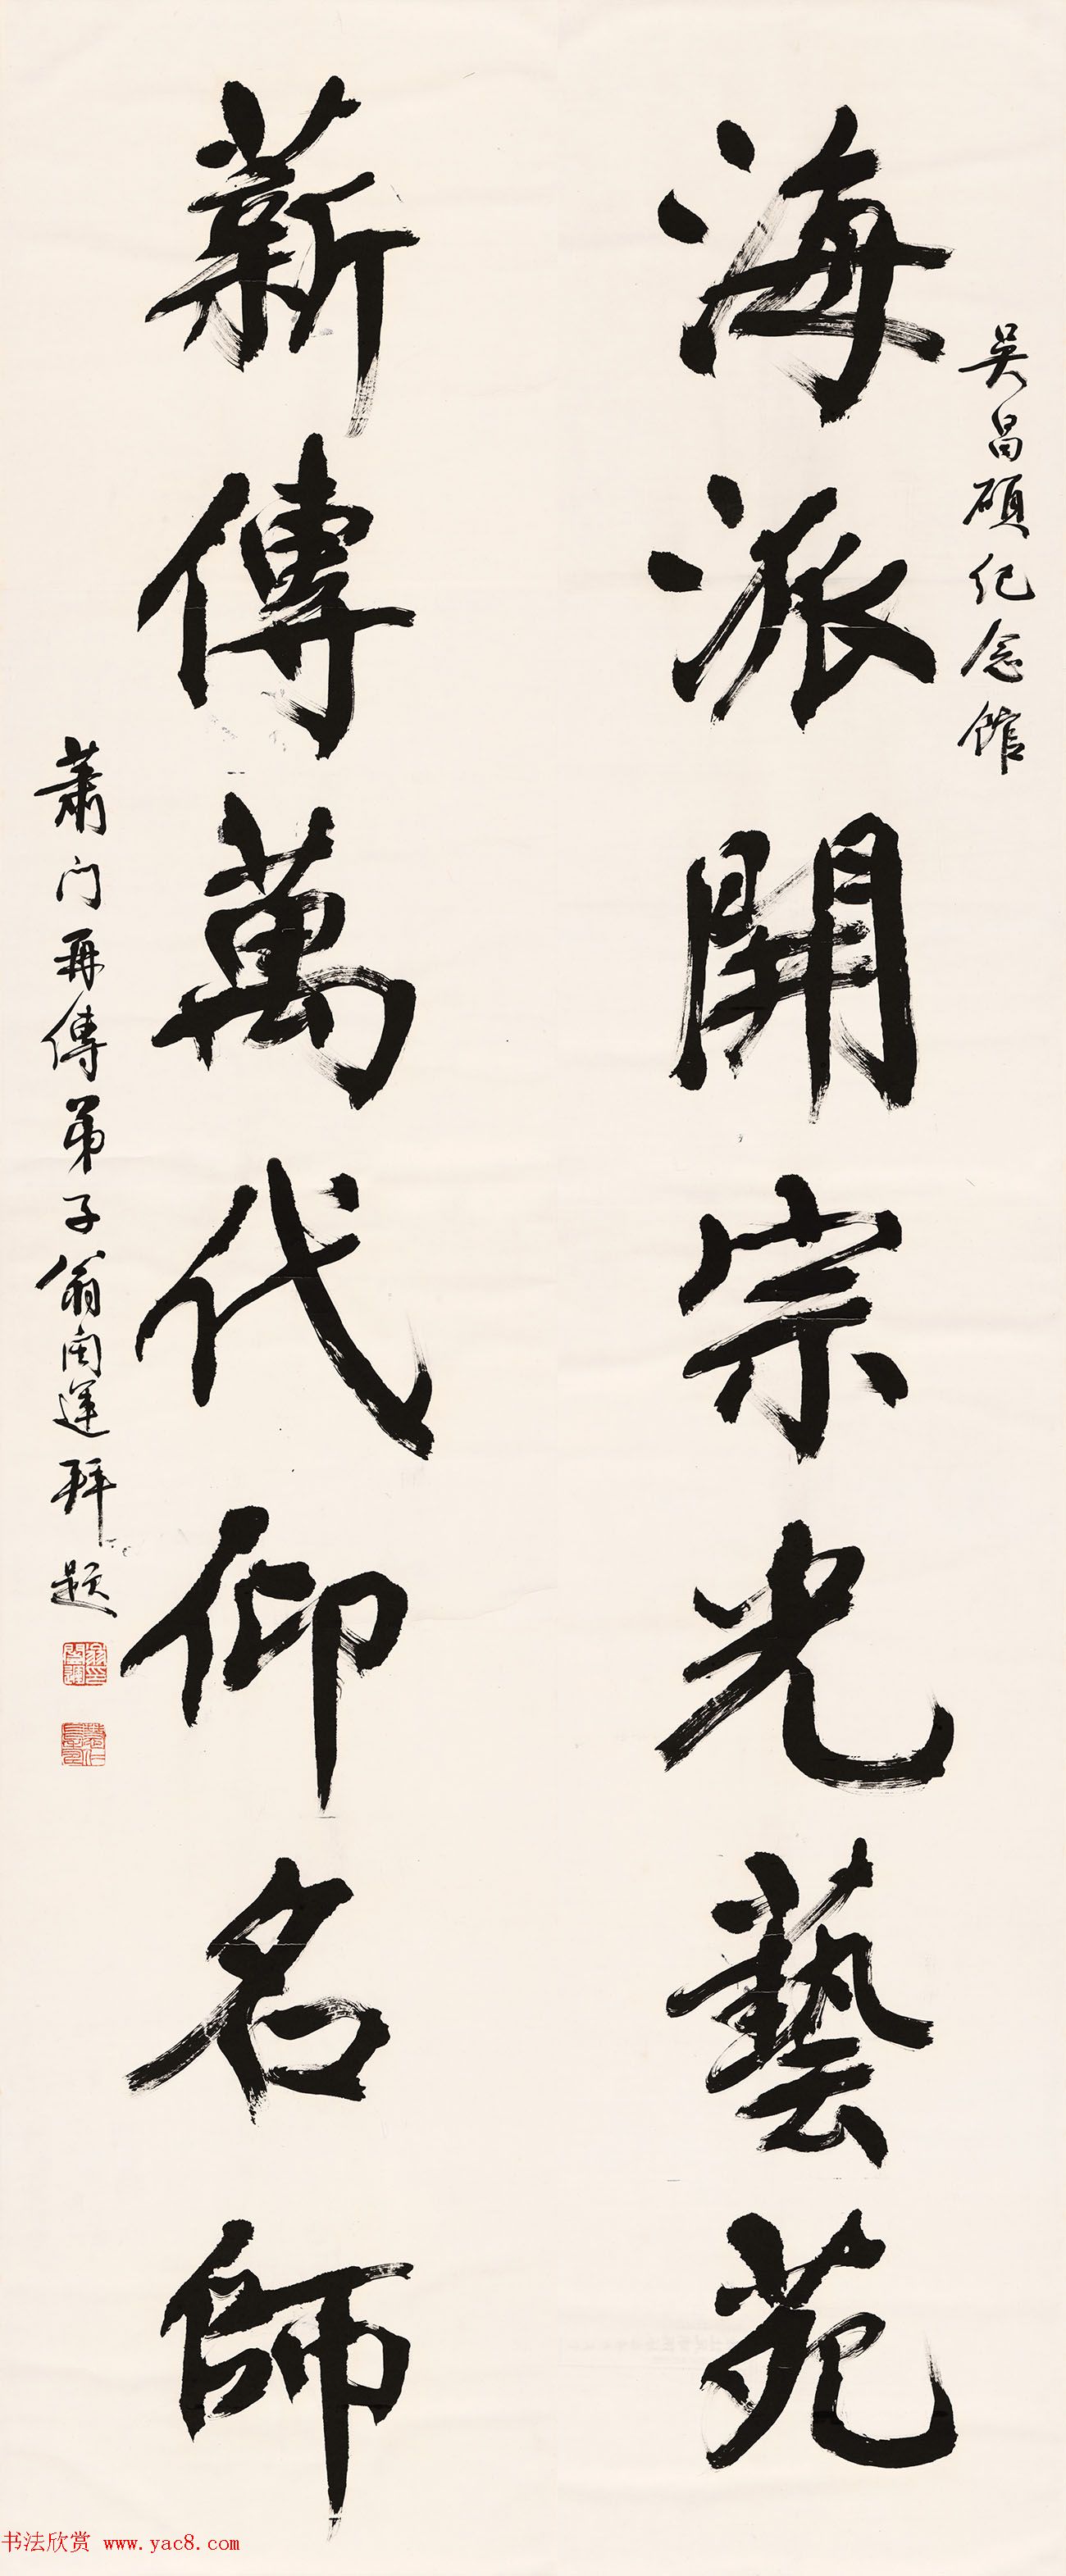 吴昌碩纪念館
海派開宗光藝苑
薪傳萬代仰名師
蕭门再傳弟子翁闿運拜题
书法欣赏 www.yac8.com